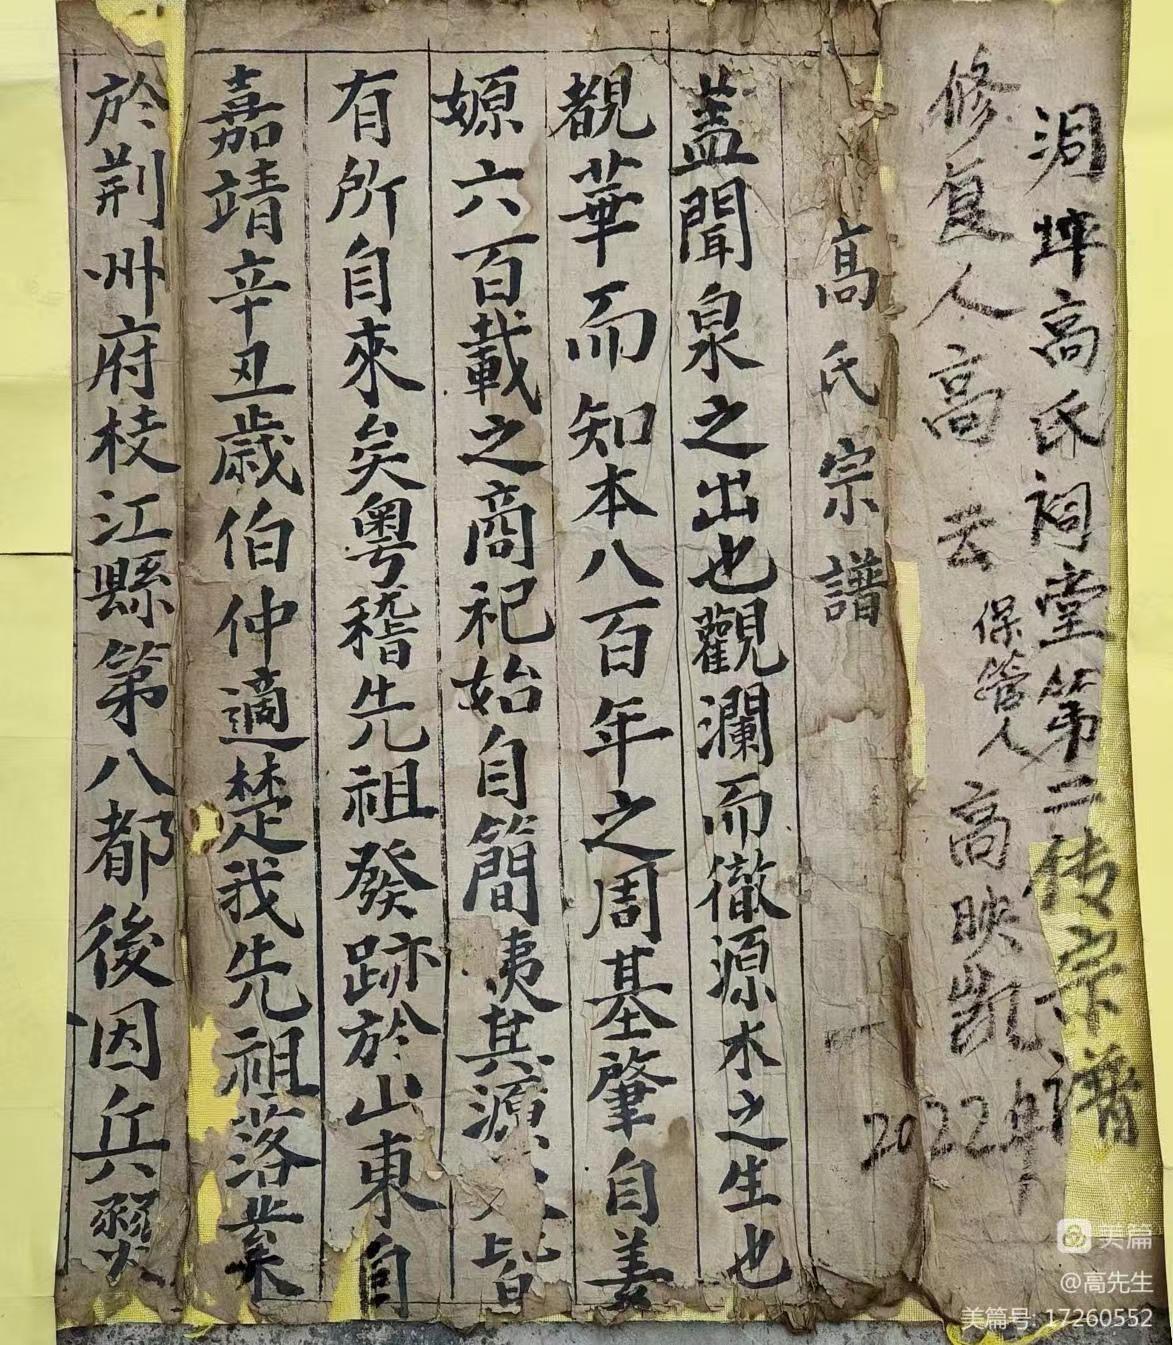 洞坪高氏祠堂第二传宗谱
修复人高云
保管人高映凯
2022年
高氏宗譜
蓋聞泉之出也觀瀾而徹源木之生也
覩華而知本八百年之周基肇自姜
嫄六百載之商祀始自簡夷其源皆
有所自來矣粵稽先祖發跡於山東自
嘉靖辛丑歲伯仲適楚我先祖落業
於荆州府枝江縣第八都後因兵燹
美篇
@高先生
美篇号: 17260552